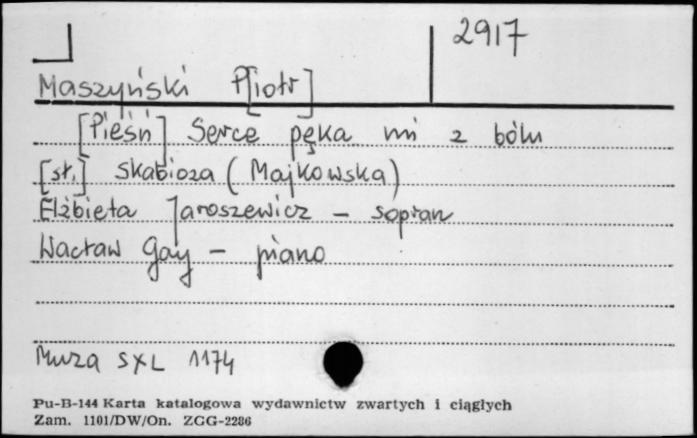 2917
Maszyński P[iotr]
[Pieśń] Serce pęka mi z bólu
[sł.] Skabioza (Majkowska)
Elżbieta Jaroszewicz - sopran
Wacław Gay - piano
Muza SXL 1174
Pu-B-144 Karta katalogowa wydawnictw zwartych i ciągłych
Zam. 1101/DW/On. ZGG-2286